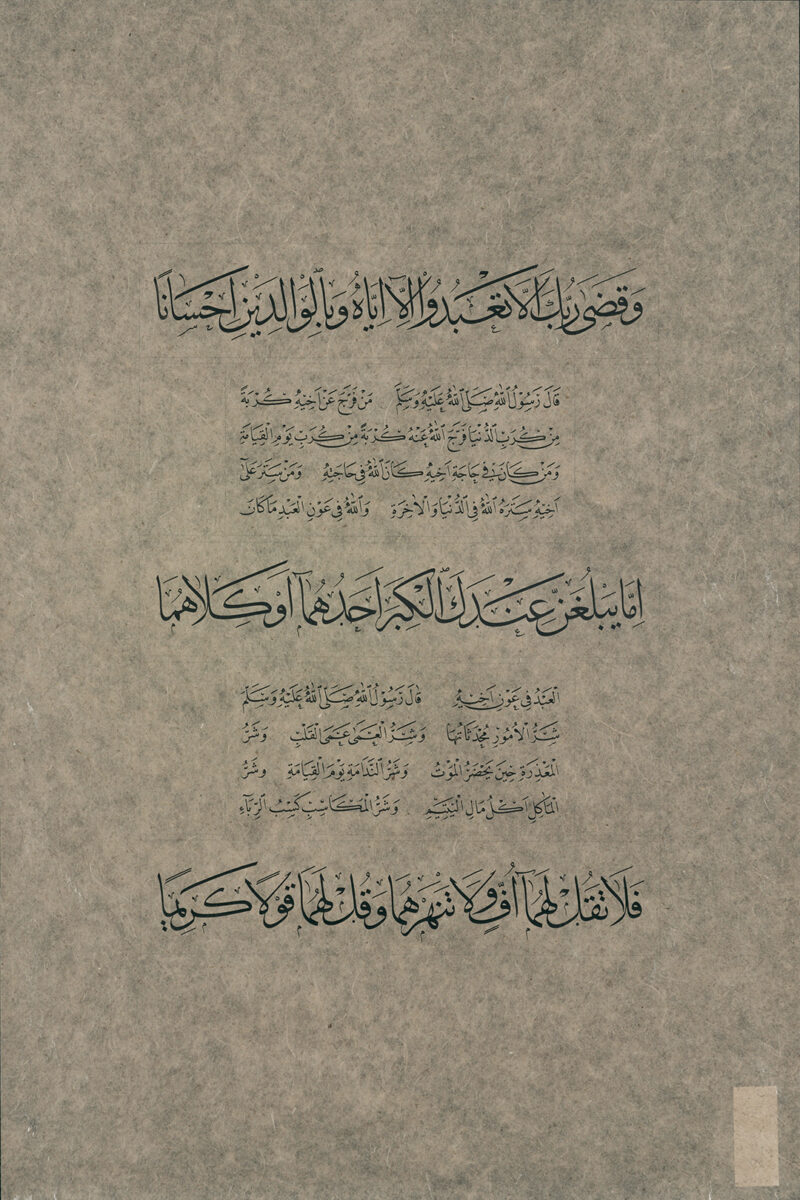 وَقَضَىٰ رَبُّكَ اَلَّا تَعْبُدُوا اِلَّا اِيَّاهُ وَبِالْوَالِدَيْنِ اِحْسَانًا
قَالَ رَسُوْلُ اللّٰهِ صَلَّى اللّٰهُ عَلَيْهِ وَسَلَّمَ مَنْ فَرَّجَ عَنْ اَخِيْهِ كُرْبَةً
مِنْ كُرَبِ الدُّنْيَا فَرَّجَ اللّٰهُ عَنْهُ كُرْبَةً مِنْ كُرَبِ يَوْمِ الْقِيَامَةِ
وَمَنْ كَانَ فِي حَاجَةِ اَخِيْهِ كَانَ اللّٰهُ فِي حَاجَتِهِ وَمَنْ سَتَرَ عَلَى
اَخِيْهِ سَتَرَهُ اللّٰهُ فِي الدُّنْيَا وَالْاٰخِرَةِ وَاللّٰهُ فِي عَوْنِ الْعَبْدِ مَا كَانَ
اِمَّا يَبْلُغَنَّ عِنْدَكَ الْكِبَرَ اَحَدُهُمَا اَوْ كِلَاهُمَا
الْعَبْدُ فِي عَوْنِ اَخِيْهِ قَالَ رَسُوْلُ اللّٰهِ صَلَّى اللّٰهُ عَلَيْهِ وَسَلَّمَ
شَرُّ الْاُمُوْرِ مُحْدَثَاتُهَا وَشَرُّ الْعَمَى عَمَى الْقَلْبِ وَشَرُّ
الْمَعْذِرَةِ حِيْنَ يَحْضَرُ الْمَوْتُ وَشَرُّ النَّدَامَةِ يَوْمَ الْقِيَامَةِ وَشَرُّ
الْمَاٰكِلِ اَكْلُ مَالِ الْيَتِيْمِ وَشَرُّ الْمَكَاسِبِ كَسْبُ الرِّبَاءِ
فَلَا تَقُلْ لَهُمَا اُفٍّ وَلَا تَنْهَرْهُمَا وَقُلْ لَهُمَا قَوْلًا كَرِيمًا